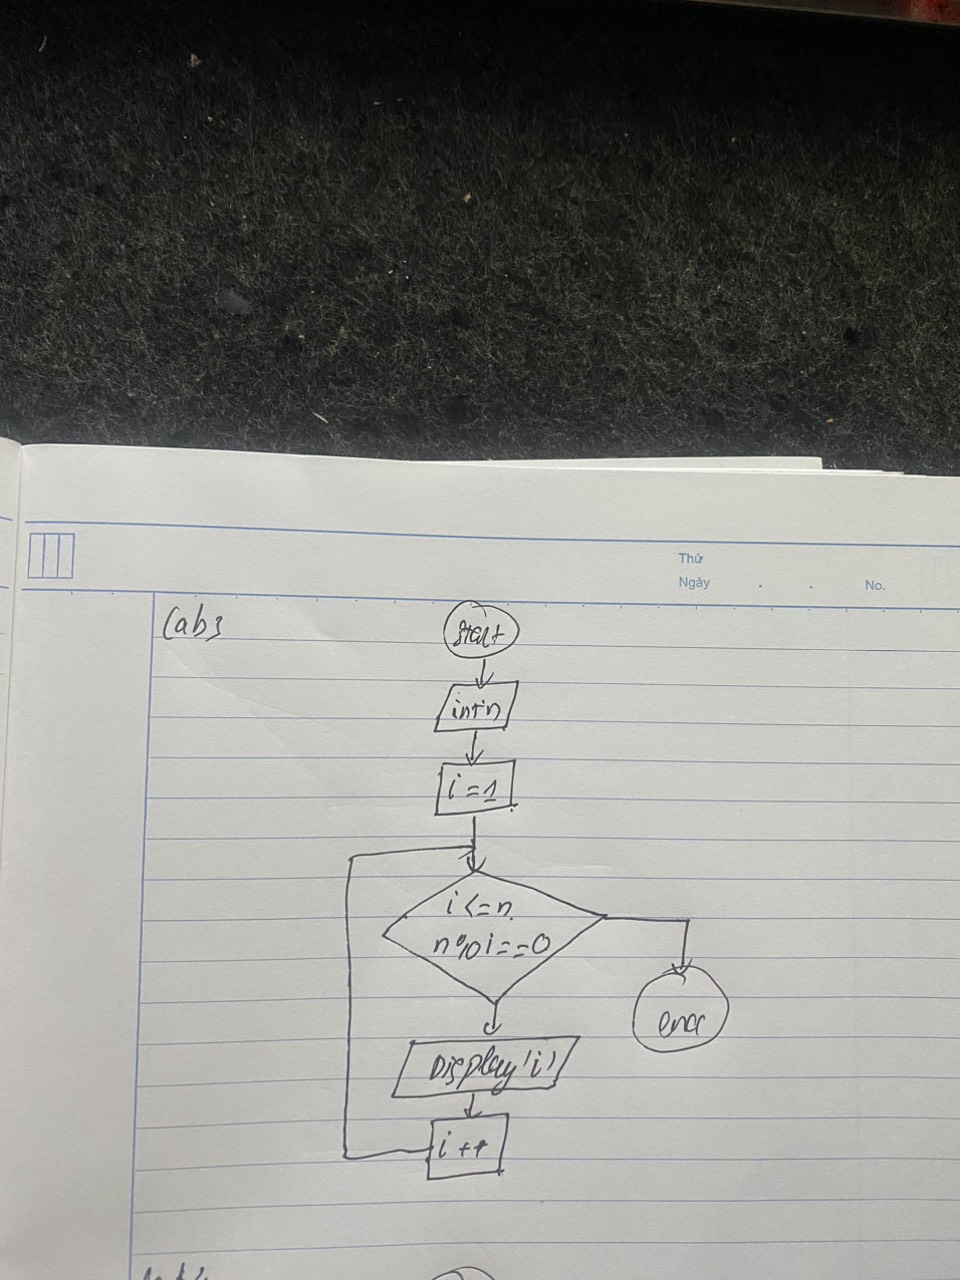 Thứ
Ngày . . No.
Lab3
Start
int n
i = 1
i <= n
n % i == 0
end
Display 'i'
i ++